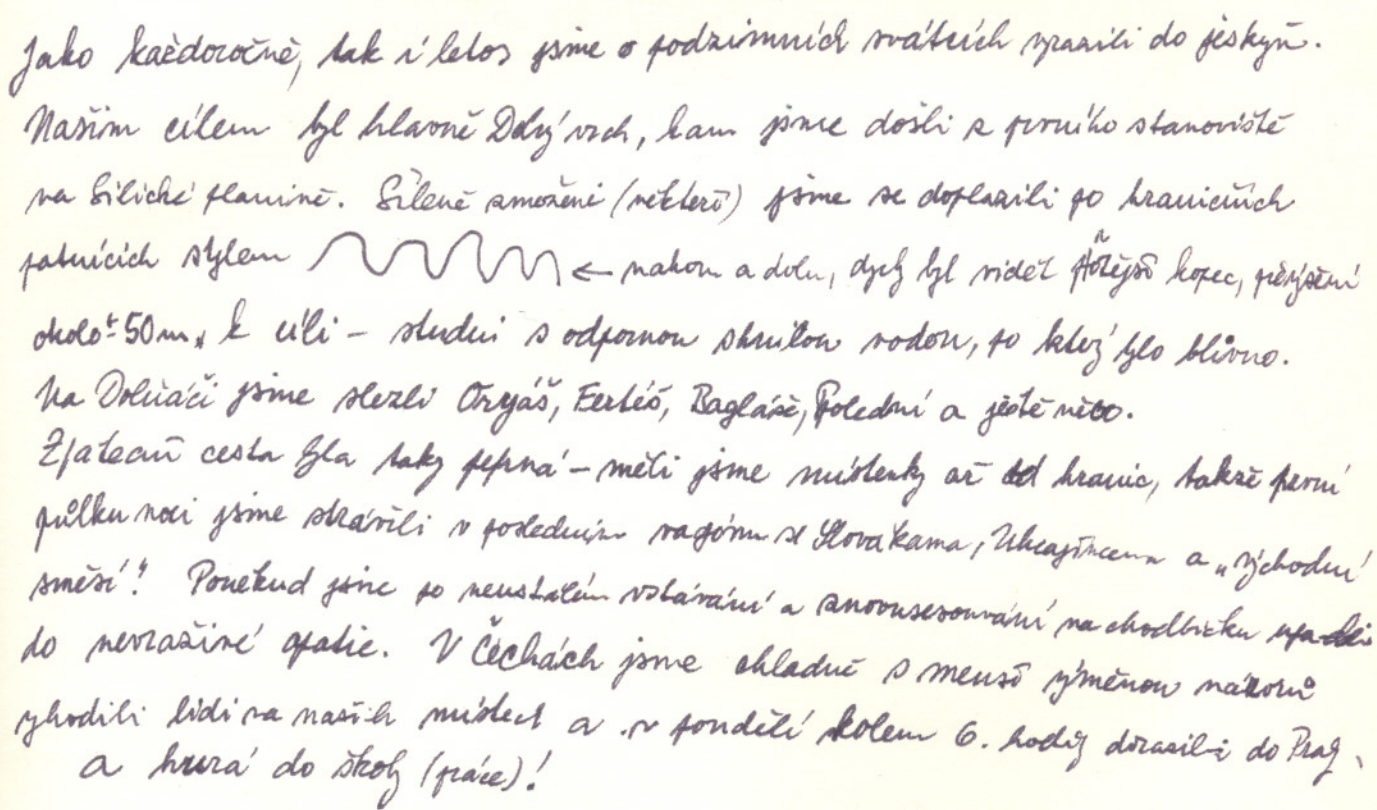 Jako každoročně, tak i letos jsme o podzimních svátcích vyrazili do jeskyň.
Našim cílem byl hlavně Dolný vrch, kam jsme došli z prvního stanoviště
na Silické planině. Šíleně zmožení (někteří) jsme se doplazili po hraničních
patnících stylem ← nahoru a dolu, dycky byl vidět kopec, převýšení
okolo ± 50m, k cíli – studni s odpornou shnilou vodou, po který bylo blivno.
Na Dolňáči jsme slezli Oryáš, Ferteš, Bagláše, Polední a ještě něco.
Zpáteční cesta byla taky peprná – měli jsme místenky až od hranic, takže první
půlku noci jsme strávili v posledním vagónu se Slovákama, Ukrajincema a „východní
směsí". Poněkud jsme po neustálém vstávání a znovusesouvání na chodbičku upadli
do nevraživé apatie. V Čechách jsme chladně s menší výměnou názorů
vyhodili lidi na našich místech a v pondělí kolem 6. hodiny dorazili do Prahy,
a hurá do školy (práce)!